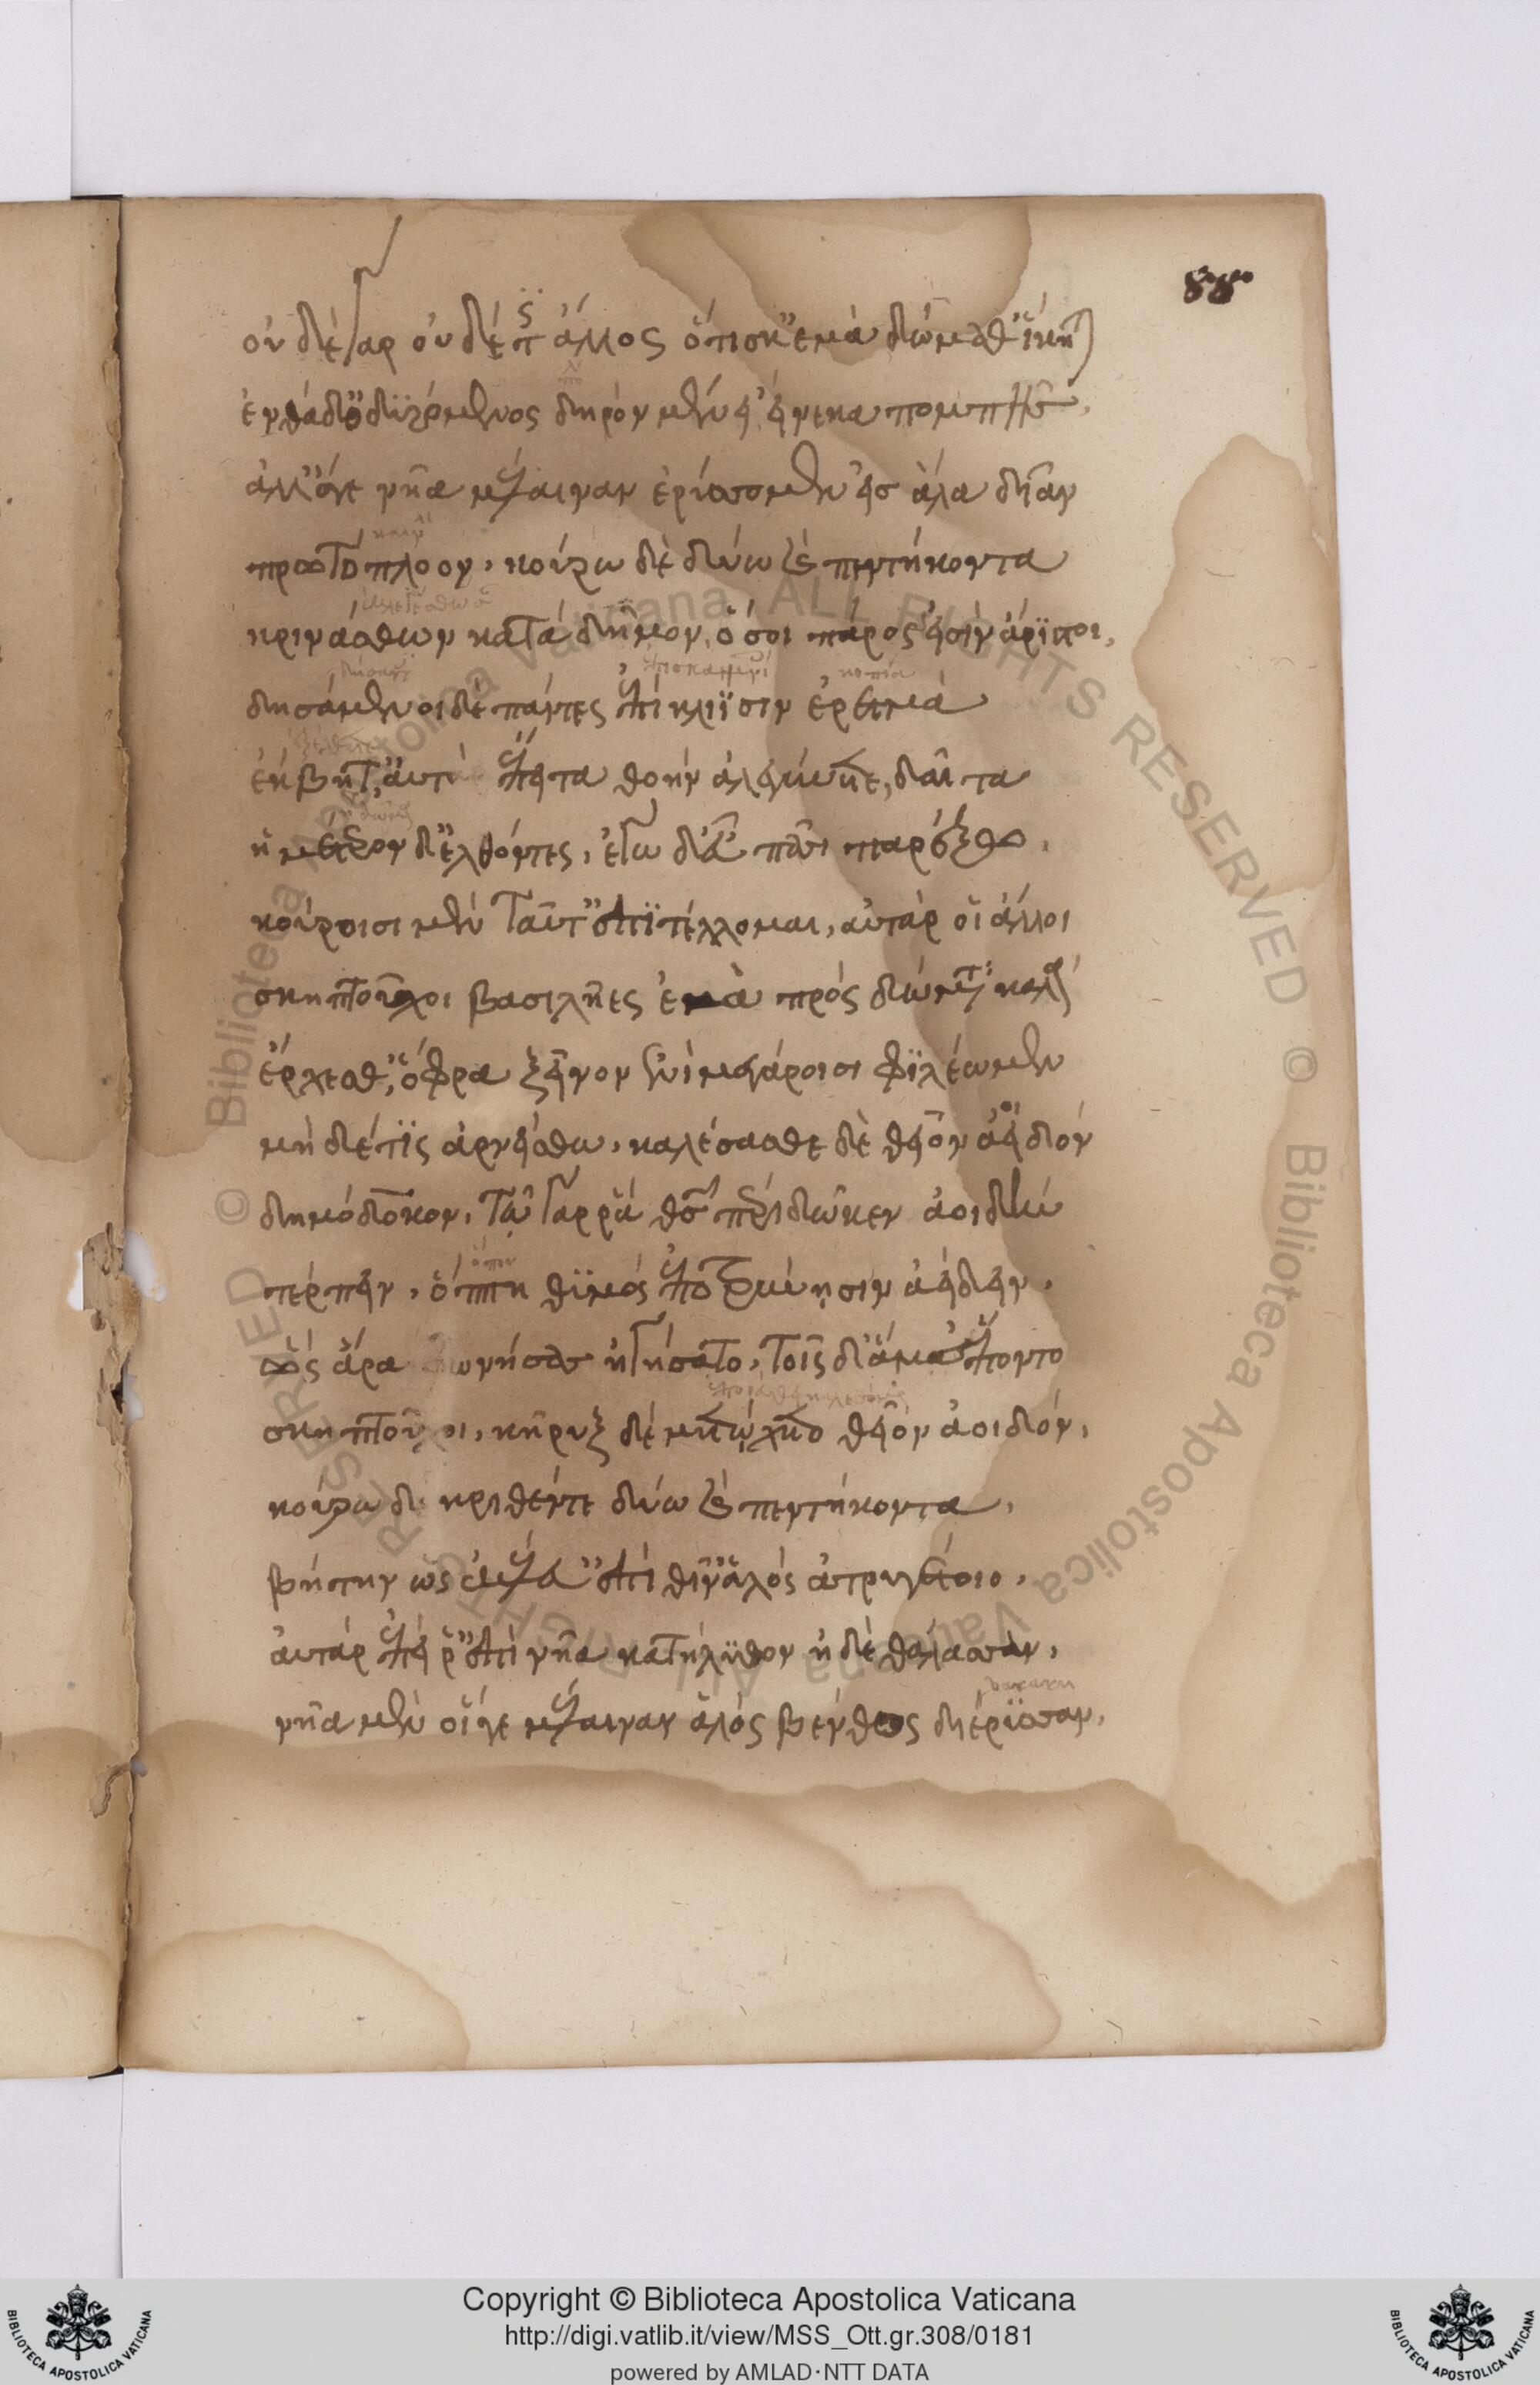 88
οὐδὲ γὰρ οὐδέ τις ἄλλος ὅτις κ' ἐμὰ δώμαθ' ἵκηται
ἐνθάδ' ὀδυρόμενος δηρὸν μένει εἵνεκα πομπῆς.
ἀλλ' ἄγε νῆα μέλαιναν ἐρύσσομεν εἰς ἅλα δῖαν
πρωτόπλοον, κούρω δὲ δύω καὶ πεντήκοντα
κρινάσθων κατὰ δῆμον, ὅσοι πάρος εἰσὶν ἄριστοι,
δησάμενοι δὲ πάντες ἐπὶ κληῖσιν ἐρετμὰ
ἔκβητ', αὐτὰρ ἔπειτα θοὴν ἀλεγύνετε δαῖτα
ἡμέτερον δ' ἐλθόντες, ἐγὼ δ' εὖ πᾶσι παρέξω.
κούροισι μὲν ταῦτ' ἐπιτέλλομαι, αὐτὰρ οἱ ἄλλοι
σκηπτοῦχοι βασιλῆες ἐμὰ πρὸς δώματα καλὰ
ἔρχεσθ', ὄφρα ξεῖνον ἐνὶ μεγάροισι φιλέωμεν
μηδέ τις ἀρνείσθω, καλέσασθε δὲ θεῖον ἀοιδὸν
δημόδοκον, τῷ γάρ ῥα θεὸς πέρι δῶκεν ἀοιδὴν
τέρπειν, ὅππη θυμὸς ἐποτρύνησιν ἀείδειν.
ὣς ἄρα φωνήσας ἡγήσατο, τοὶ δ' ἅμ' ἕποντο
σκηπτοῦχοι, κῆρυξ δὲ μετῴχετο θεῖον ἀοιδόν,
κούρω δὲ κριθέντε δύω καὶ πεντήκοντα,
βήτην ὡς ἐκέλευσ' ἐπὶ θῖν' ἁλὸς ἀτρυγέτοιο,
αὐτὰρ ἐπεί ῥ' ἐπὶ νῆα κατήλυθον ἠδὲ θάλασσαν,
νῆα μὲν οἵγε μέλαιναν ἁλὸς βένθοσδε ἔρυσσαν,
Copyright © Biblioteca Apostolica Vaticana
http://digi.vatlib.it/view/MSS_Ott.gr.308/0181
powered by AMLAD·NTT DATA